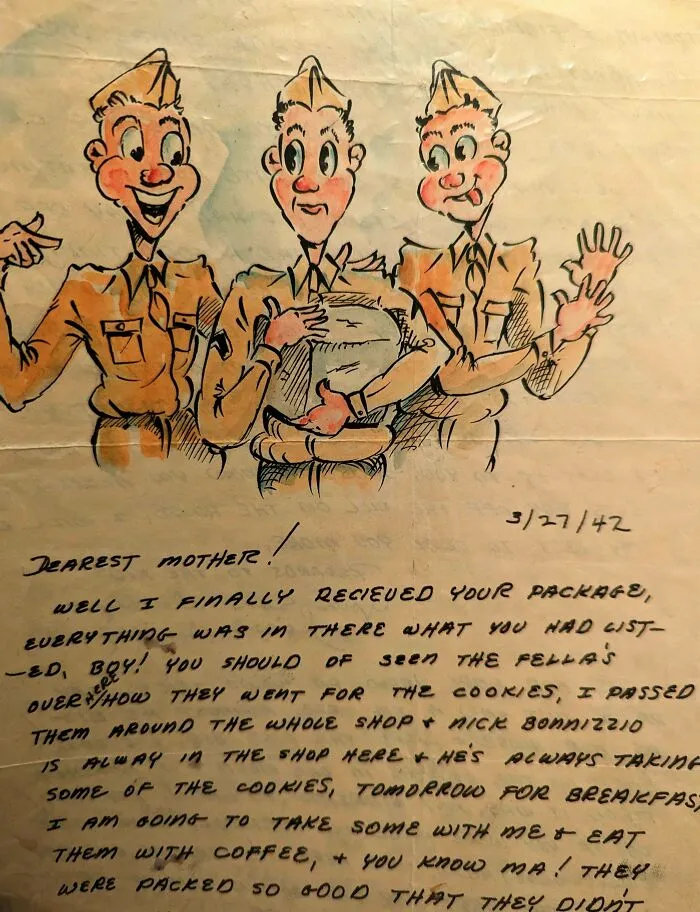 3/27/42
DEAREST MOTHER!
WELL I FINALLY RECIEVED YOUR PACKAGE,
EVERYTHING WAS IN THERE WHAT YOU HAD LIST-
-ED, BOY! YOU SHOULD OF SEEN THE FELLA'S
OVER HERE HOW THEY WENT FOR THE COOKIES, I PASSED
THEM AROUND THE WHOLE SHOP & NICK BONNIZZIO
IS ALWAY IN THE SHOP HERE & HE'S ALWAYS TAKING
SOME OF THE COOKIES, TOMORROW FOR BREAKFAST
I AM GOING TO TAKE SOME WITH ME & EAT
THEM WITH COFFEE, & YOU KNOW MA! THEY
WERE PACKED SO GOOD THAT THEY DIDN'T